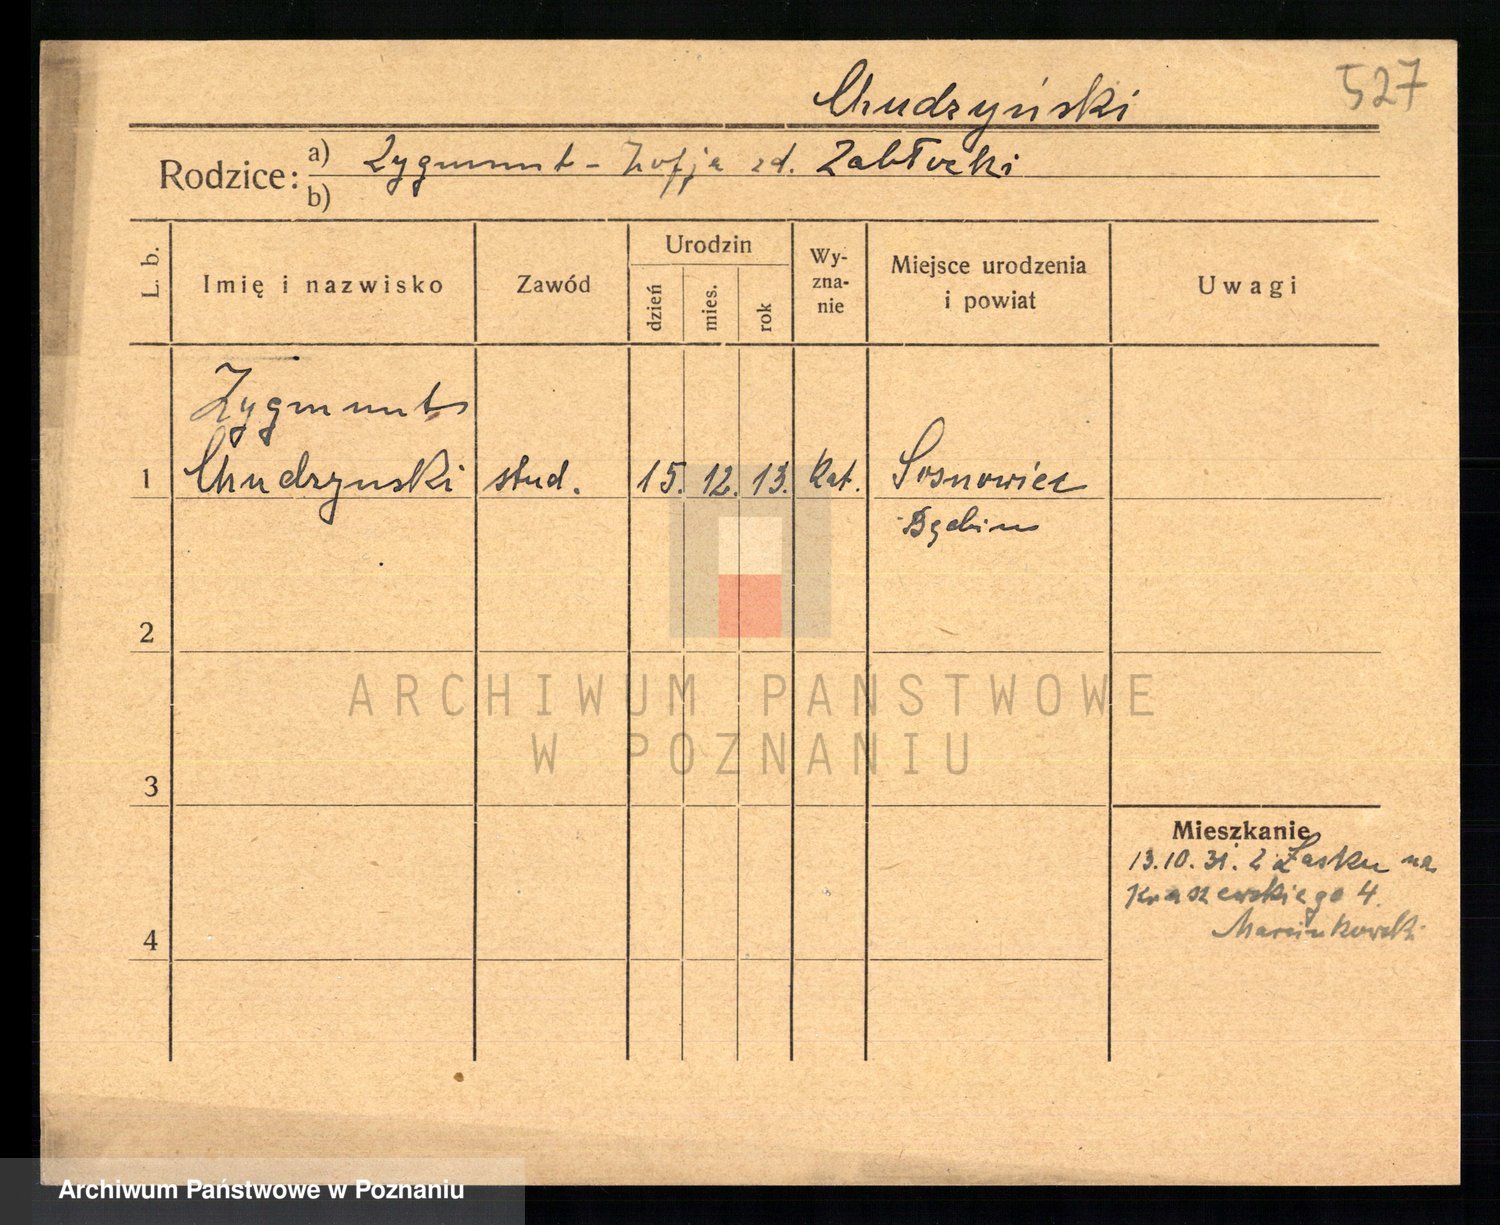 Chudzyński 527
Rodzice: a) Zygmunt - Zofja zd. Zabłocki
b)
L. b. Imię i nazwisko Zawód Urodzin dzień mies. rok Wy-zna-nie Miejsce urodzenia i powiat Uwagi
Zygmunt
1 Chudzynski stud. 15. 12. 13. kat. Sosnowiec
Będzin
2
ARCHIWUM PAŃSTWOWE
W POZNANIU
3
Mieszkanie
13.10.31. z Łasku na
Kraszewskiego 4.
Marcinkowski
4
Archiwum Państwowe w Poznaniu